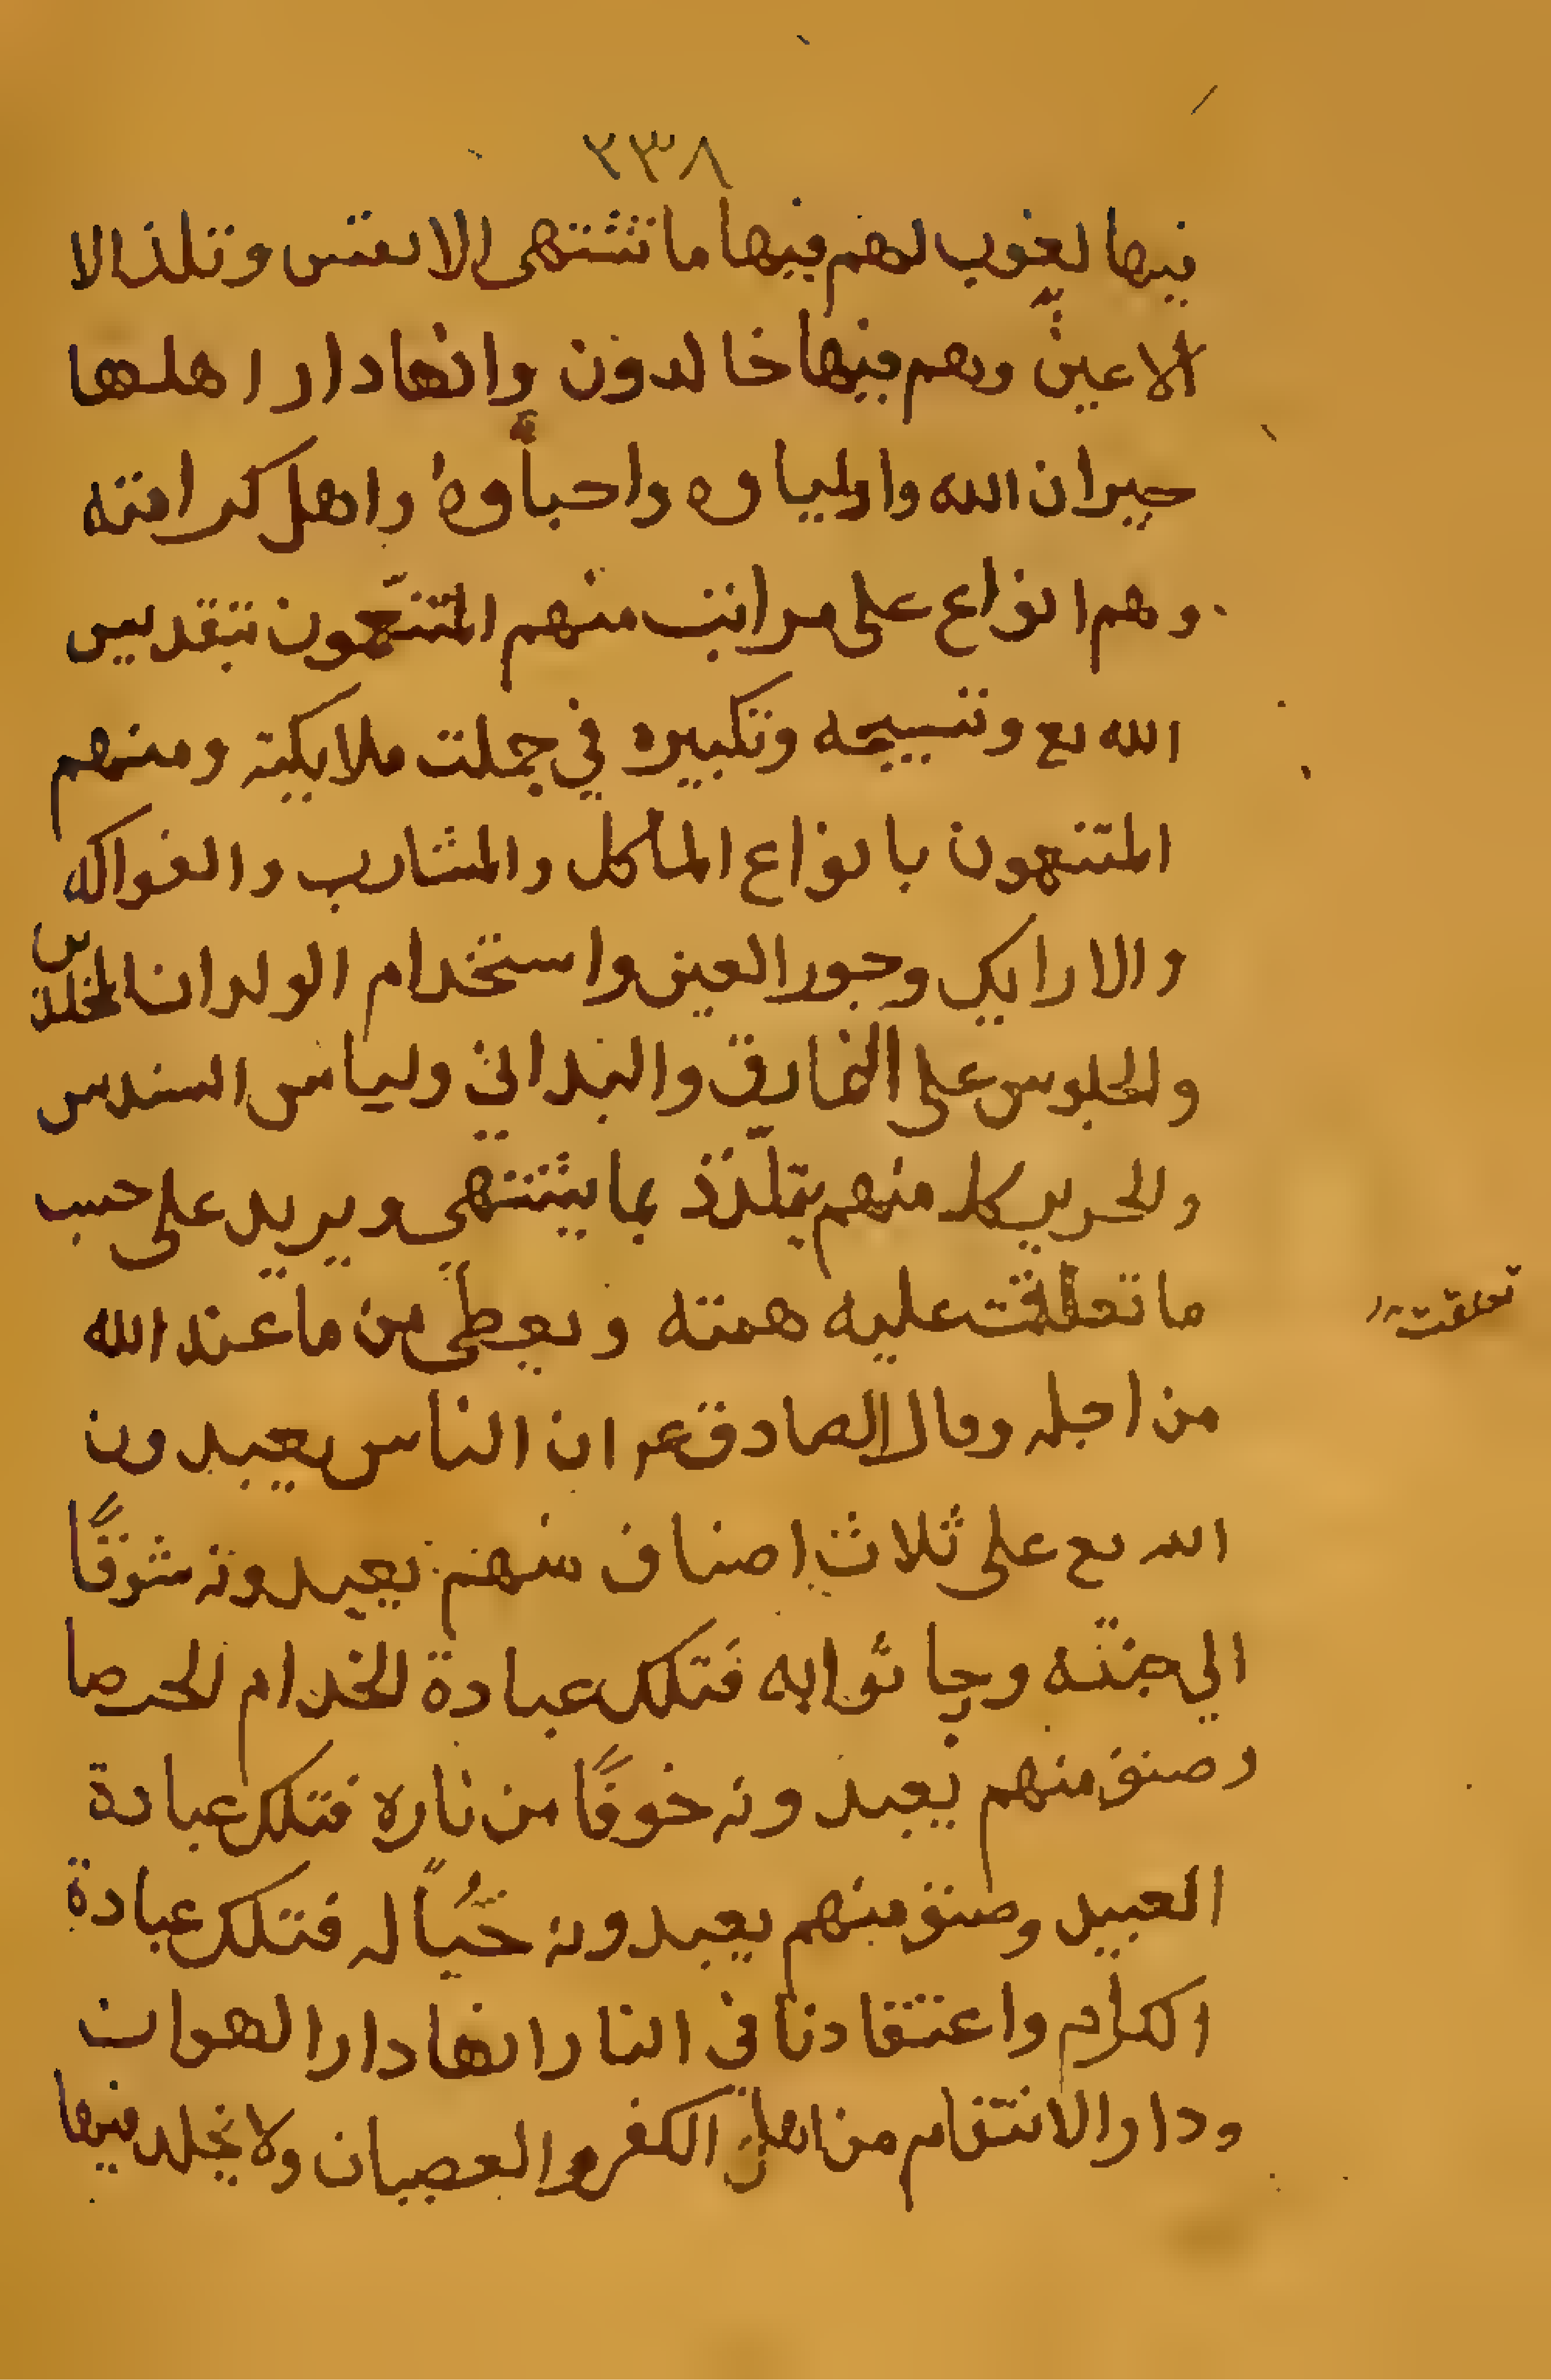 ٢٣٨
فيها لغوب لهم فيها ما تشتهى الانفس وتلذ الا
الاعين وهم فيها خالدون وانها دار اهلها
جيران الله واولياوه واحباوه واهل كرامته
وهم انواع على مراتب منهم المتنعمون بتقديس
الله تع وتسبيحه وتكبيره في جملت ملايكته ومنهم
المتنعمون بانواع المأكل والمشارب والفواكه
والارايك وحور العين واستخدام الولدان المخلدين
والجلوس على النمارق والزرابي ولباس السندس
والحرير كل منهم يتلذذ بما يشتهى ويريد على حسب
ما تعلقت عليه همته ويعطى من ما عند الله
تعلقت
من اجله وقال الصادق عم ان الناس يعبدون
الله تع على ثلاث اصناف منهم يعبدونه شوقًا
الي جنته ورجا ثوابه فتلك عبادة الخدام الحرصا
وصنف منهم يعبدونه خوفًا من ناره فتلك عبادة
العبيد وصنف منهم يعبدونه حبًا له فتلك عبادة
الكرام واعتقادنا في النار انها دار الهوان
ودار الانتقام من اهل الكفر والعصيان ولا يخلد فيها